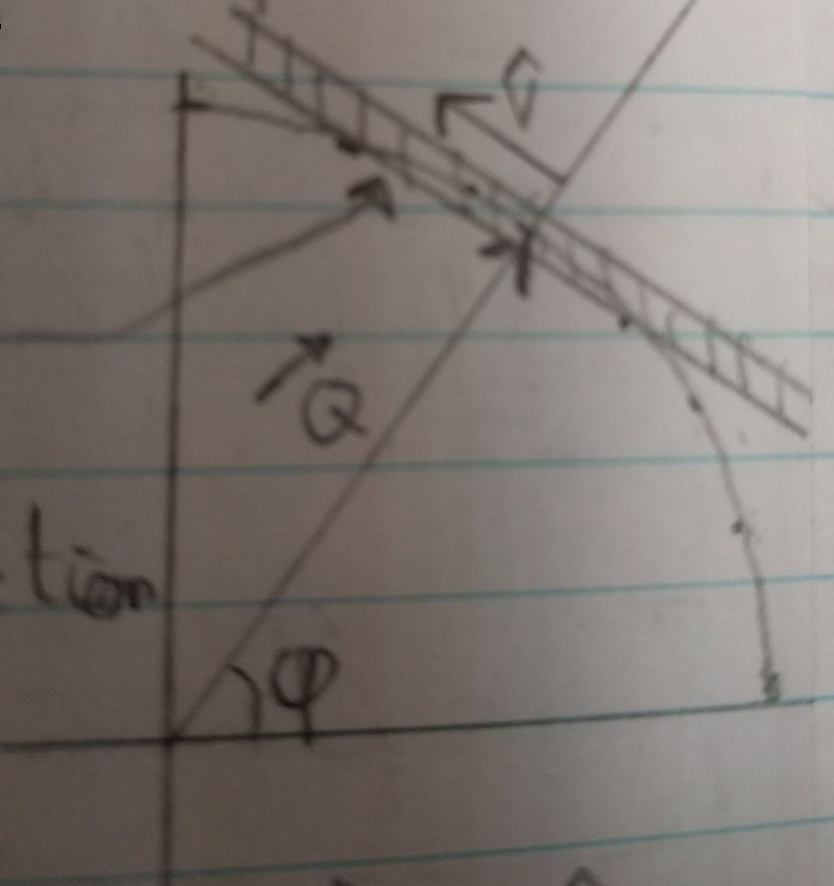 Q
tion
φ